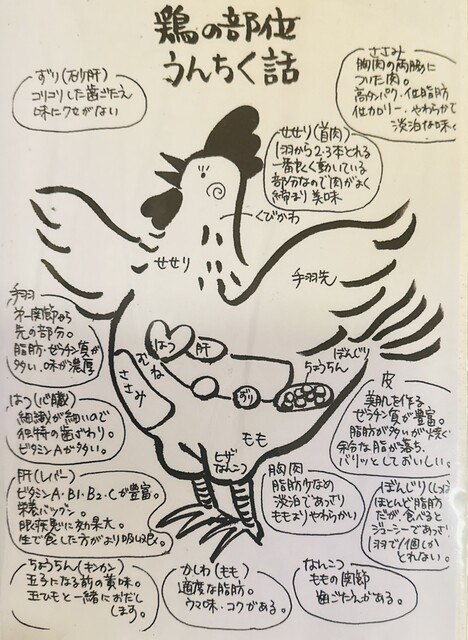 鶏の部位
うんちく話
ずり(砂肝)
コリコリした歯ごたえ
味にクセがない
ささみ
胸肉の両脇に
ついた肉。
高タンパク・低脂肪
低カロリー・やわらかで
淡泊な味
せせり(首肉)
1羽から2・3本とれる
一番よく動いている
部分なので肉がよく
締まり美味
くびかわ
せせり
手羽先
手羽
第一関節から
先の部分。
脂肪・ゼラチン質が
多い、味が濃厚
はつ
肝
むね
ささみ
ずり
ぼんじり
ちょうちん
もも
ヒザ
なんこつ
はつ(心臓)
繊維が細いので
独特の歯ざわり。
ビタミンAが多い。
皮
美肌を作る
ゼラチン質が豊富。
脂肪が多いが焼く
余分な脂が落ち、
パリッとしておいしい。
肝(レバー)
ビタミンA・B1・B2・Cが豊富。
栄養バツグン。
眼疾患に効果大。
生で食した方がより吸収良。
胸肉
脂肪少なめ
淡泊であっさり
ももよりやわらかい
ぼんじり
ほとんど脂肪
だが、食べると
ジューシーであっさ
1羽で1個しか
とれない。
ちょうちん(キンカン)
玉子になる前の黄味。
玉ひもと一緒におだし
します。
かしわ(もも)
適度な脂肪。
ウマ味・コクがある。
なんこつ
ももの関節
歯ごたえがある。